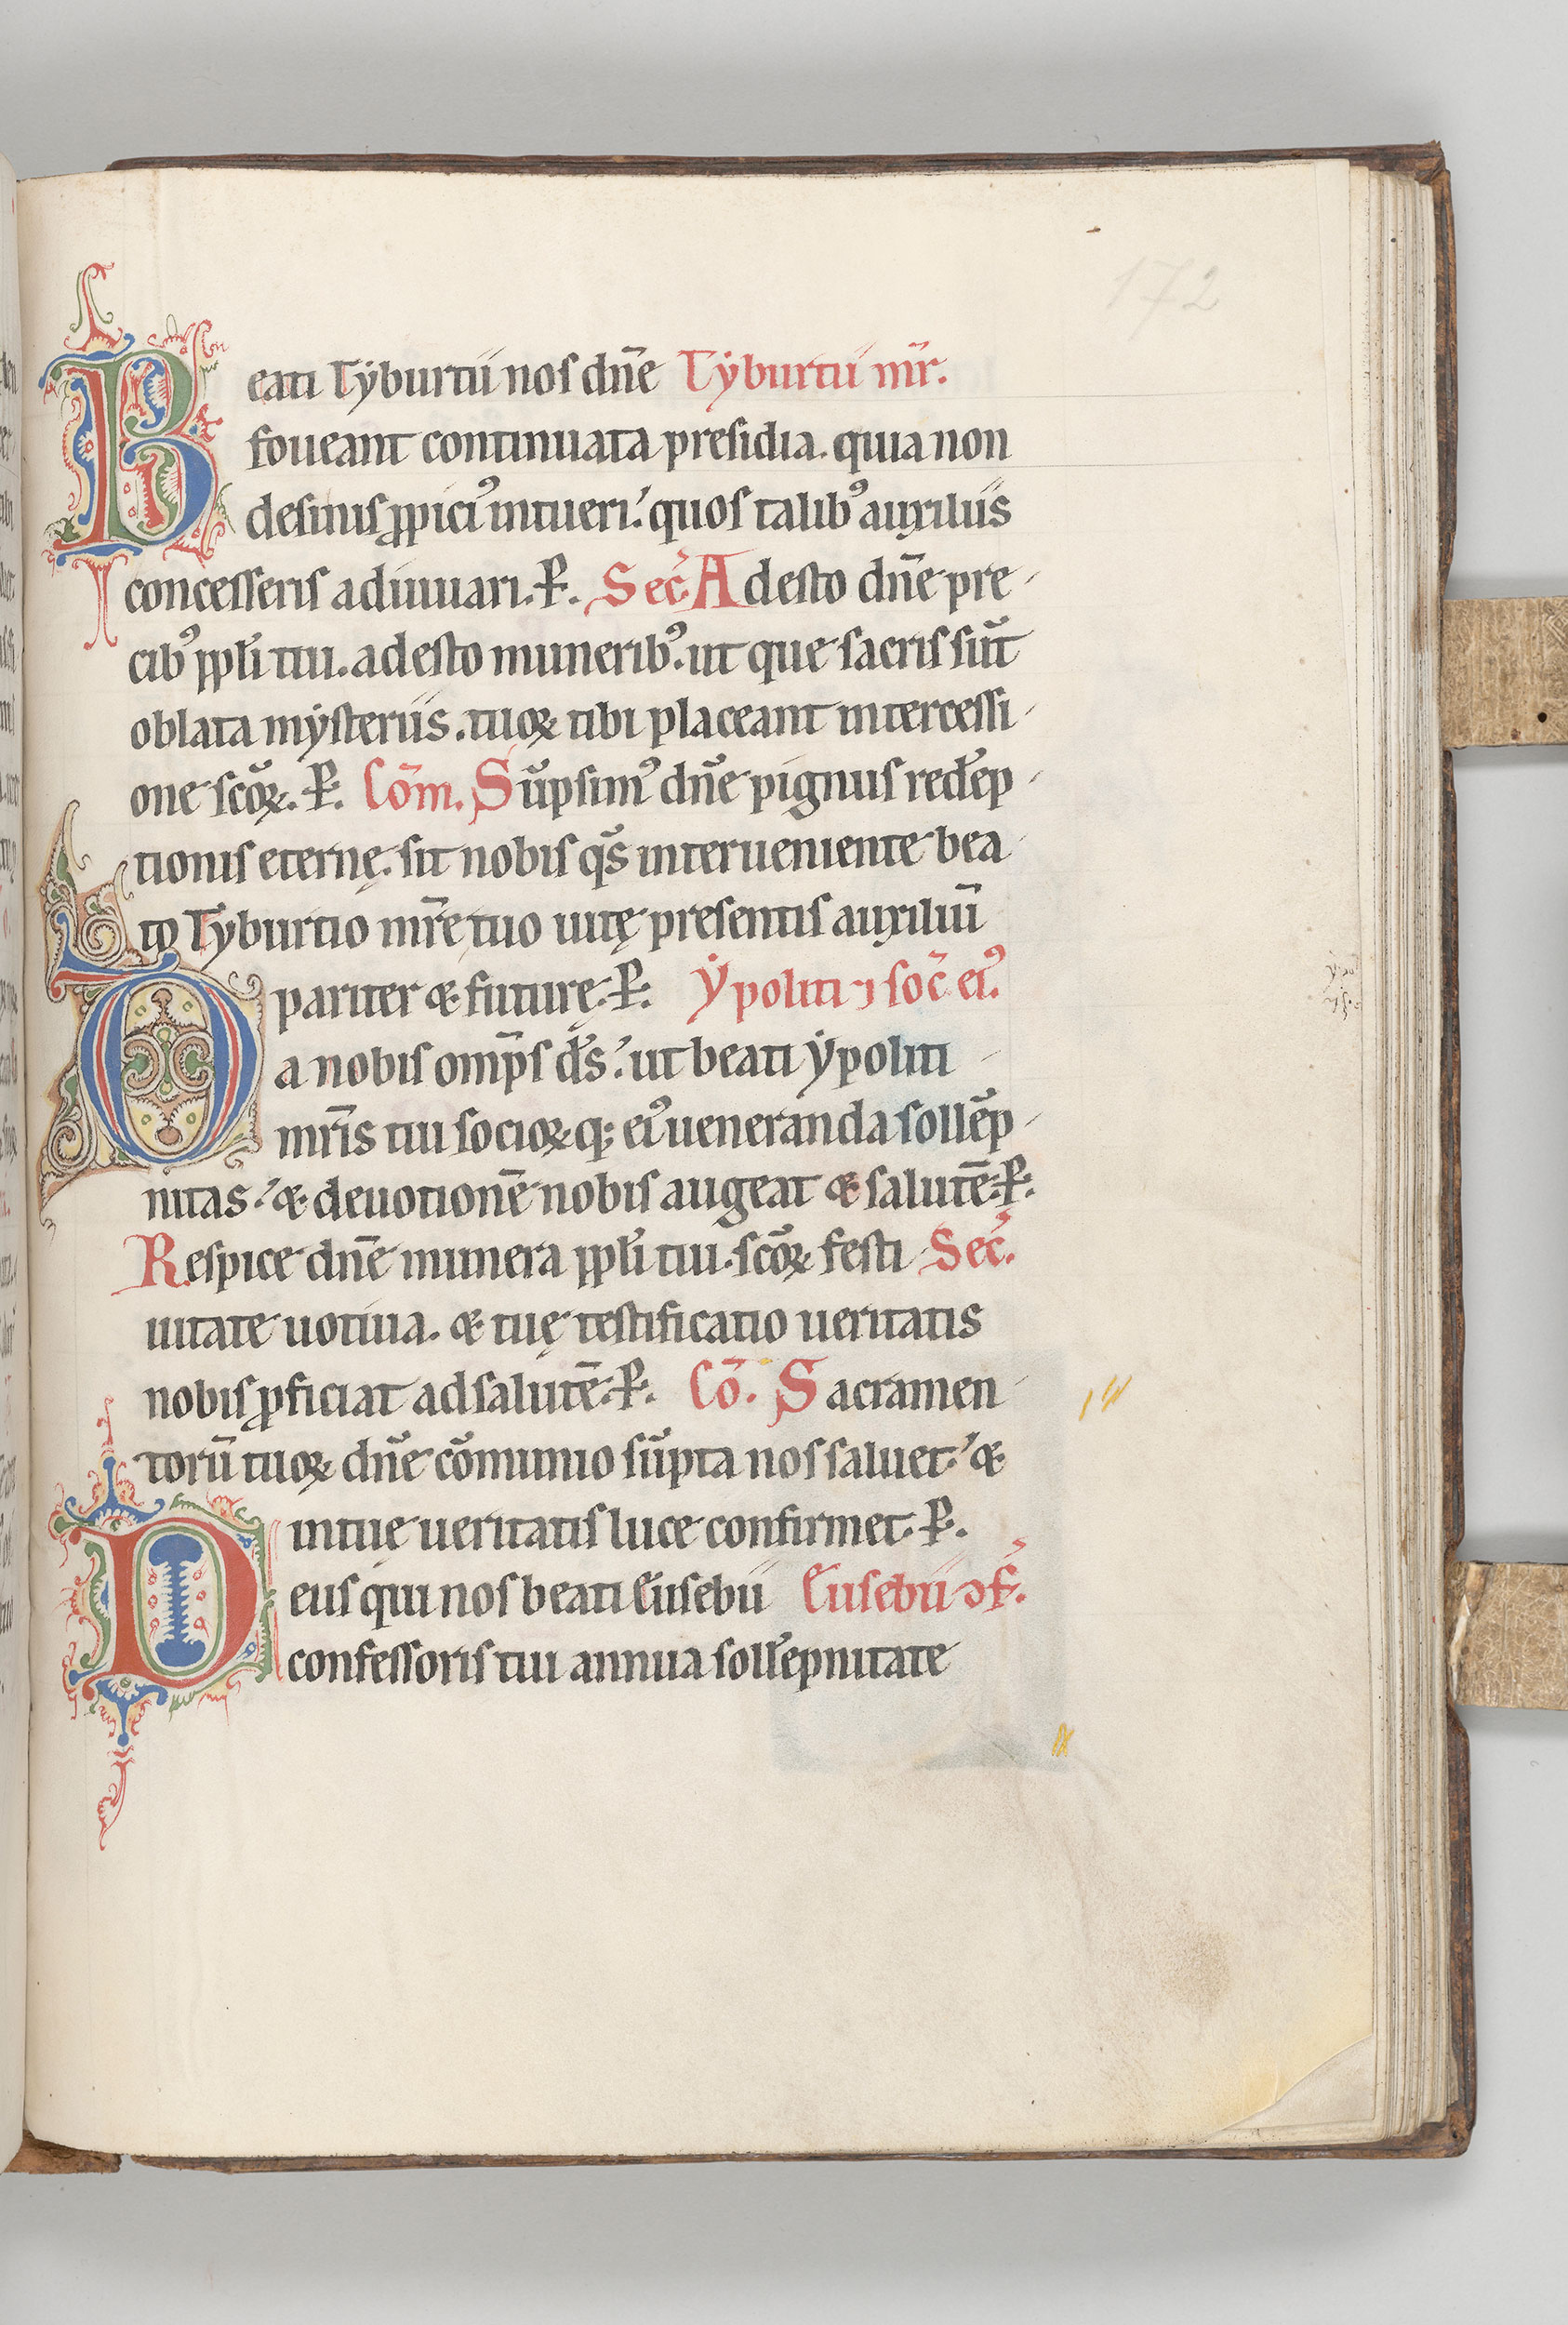 172
Beati Tyburtii nos dn̄e Tyburtii mr̄.
foueant continuata presidia. quia non
desinis ꝓpiciꝰ intueri. quos talibꝰ auxiliis
concesseris adiuuari. P̱. Sec̄. Adesto dn̄e pre-
cibꝰ ppl̄i tui. adesto muneribꝰ. ut que sacris sūt
oblata mysteriis. tuoꝝ tibi placeant intercessi-
one sc̄oꝝ. P̱. Com̄. Sūpsimꝰ dn̄e pignus redēp-
tionis eternę. sit nobis qs̄ interueniente bea-
to Tyburtio mr̄e tuo uitę presentis auxiliū
pariter & futurę. P̱. Ypoliti ⁊ soc̄ eiꝰ.
Da nobis omp̄s ds̄. ut beati Ypoliti
mr̄is tui socioꝝq; eiꝰ ueneranda sollēp-
nitas. & deuotionē nobis augeat & salutē. P̱.
Respice dn̄e munera ppl̄i tui. sc̄oꝝ festi- Sec̄.
uitate uotiua. & tuę testificatio ueritatis
nobis ꝓficiat ad salutē. P̱. Cō. Sacramen-
torū tuoꝝ dn̄e cōmunio sūpta nos saluet. &
in tuę ueritatis luce confirmet. P̱.
Deus qui nos beati Eusebii Eusebii ꝯf̄.
confessoris tui annua sollēpnitate